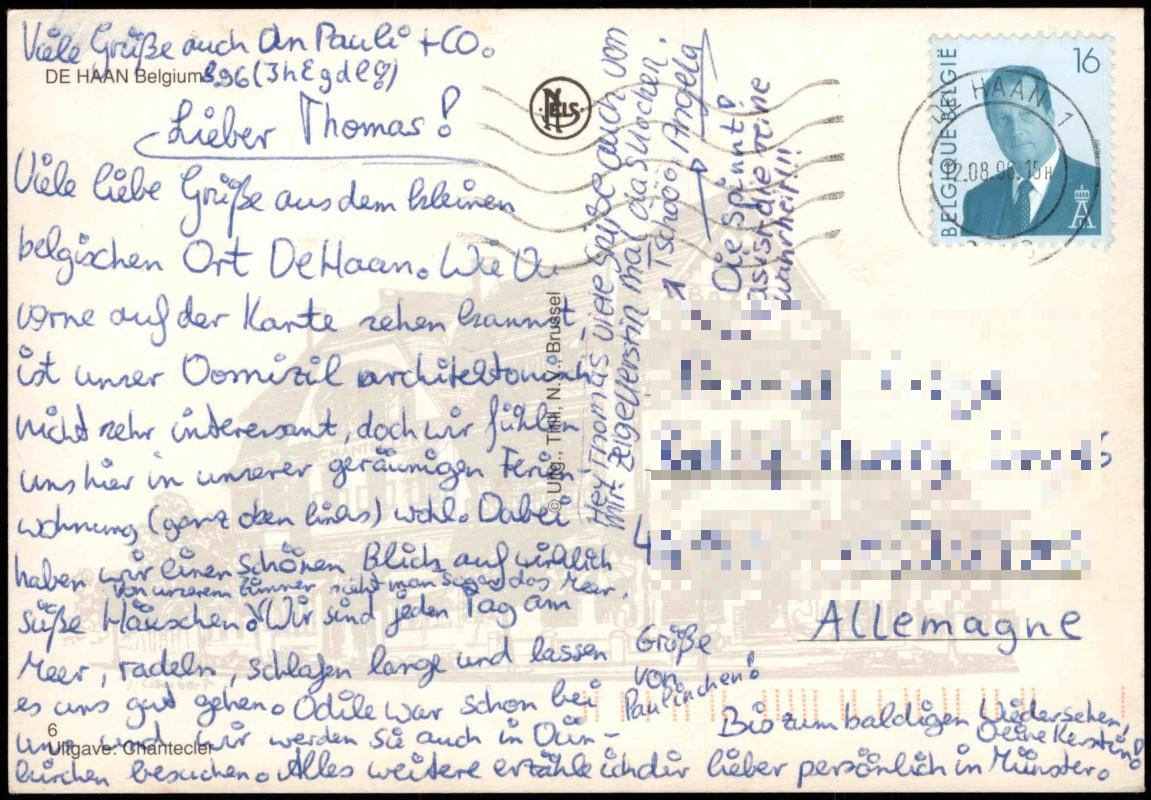 Viele Grüße auch an Pauli + CO.
DE HAAN Belgium
Lieber Thomas!
Viele liebe Grüße aus dem kleinen
belgischen Ort De Haan. Wie Du
vorne auf der Karte sehen kannst,
ist unser Domizil architektonisch
nicht sehr interessant, doch wir fühlen
uns hier in unserer geräumigen Ferien-
wohnung (ganz oben links) wohl. Dabei
haben wir einen schönen Blick auf wirklich
Von unserem Zimmer sieht man sogar das Meer.
süße Häuschen. Wir sind jeden Tag am
Meer, radeln, schlafen lange und lassen
es uns gut gehen. Odile war schon bei
uns und wir werden sie auch in Dün-
kirchen besuchen. Alles weitere erzähle ich dir lieber persönlich in Münster.
Bis zum baldigen Wiedersehen,
Deine Kerstin!
6
Uitgave: Chantecler
NELS
© Uitg., Thill, N.V., Brussel
Hey Thomas viele Grüße auch von
mir.
mal
Wochen.
Tschöö Angela
Die spinnt!
das ist die reine
Wahrheit!!!
Grüße
von
Paulinchen!
BELGIQUE BELGIË
16
HAAN 1
12.08.96.15H
Allemagne